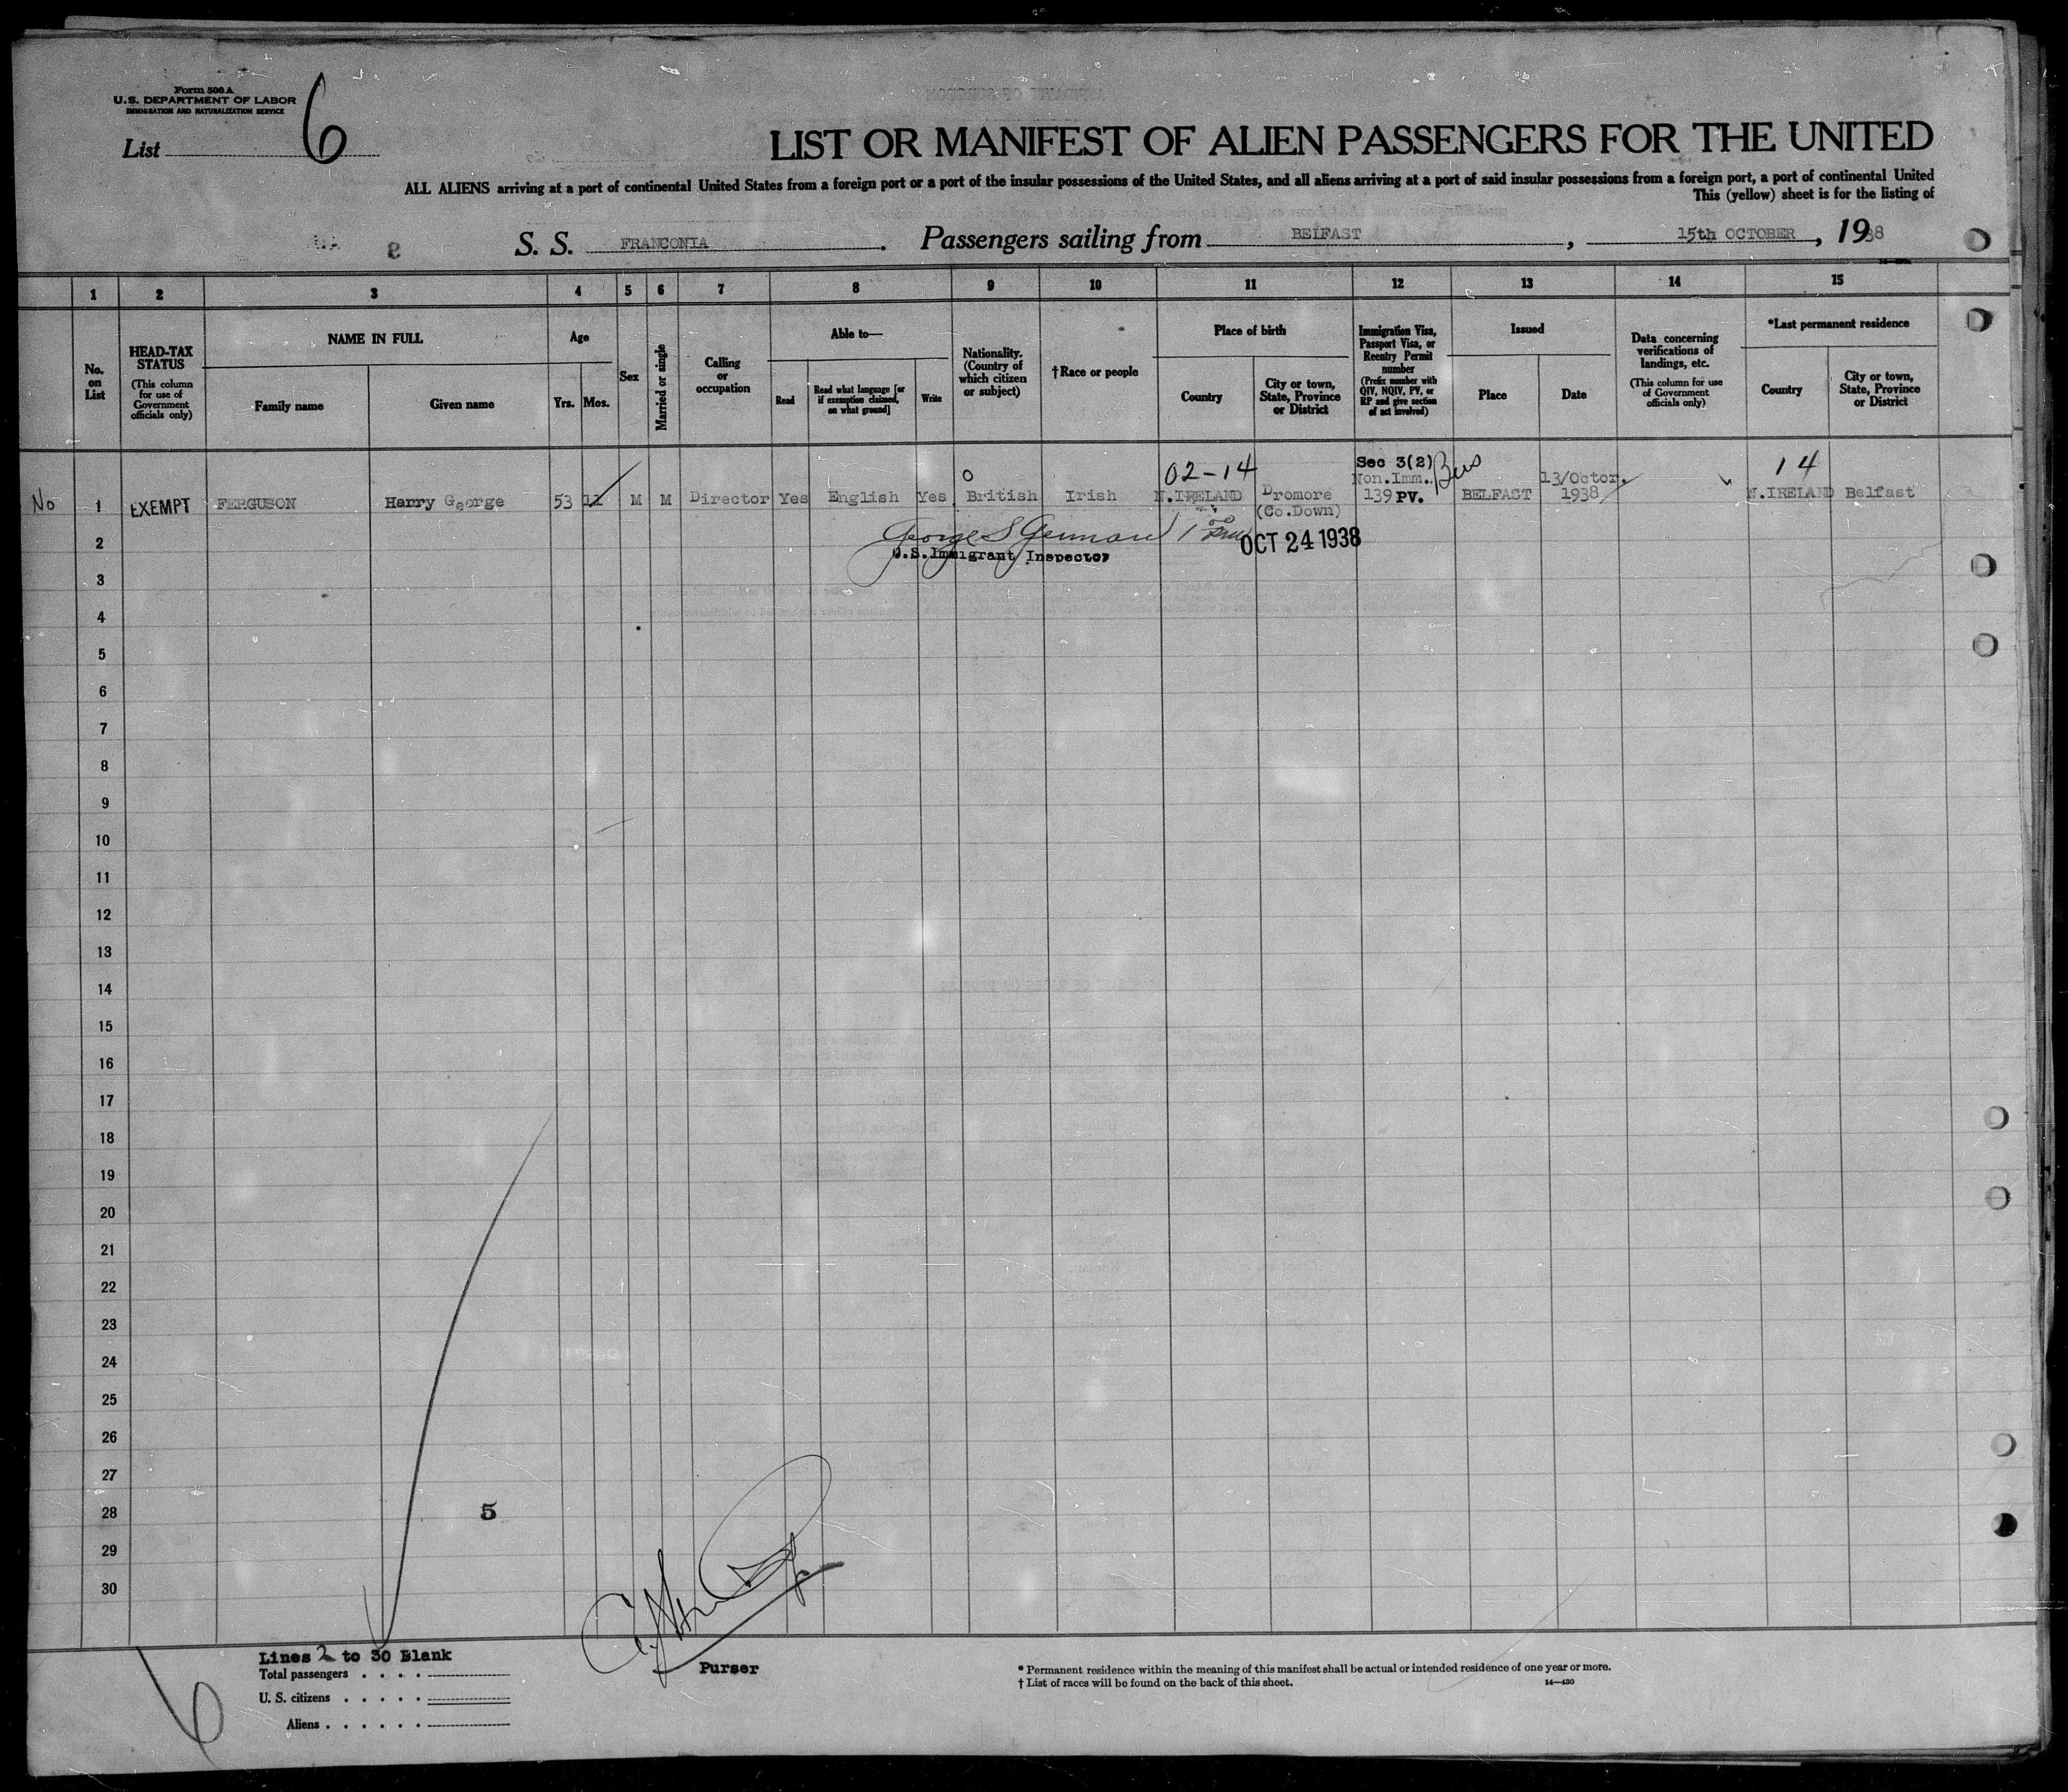 Form 500 A
U.S. DEPARTMENT OF LABOR
IMMIGRATION AND NATURALIZATION SERVICE
List 6
LIST OR MANIFEST OF ALIEN PASSENGERS FOR THE UNITED
ALL ALIENS arriving at a port of continental United States from a foreign port or a port of the insular possessions of the United States, and all aliens arriving at a port of said insular possessions from a foreign port, a port of continental United
This (yellow) sheet is for the listing of
S. S. FRANCONIA. Passengers sailing from BELFAST, 15th OCTOBER, 1938
1 2 3 4 5 6 7 8 9 10 11 12 13 14 15
No. on List
HEAD-TAX STATUS
(This column for use of Government officials only)
NAME IN FULL
Family name
Given name
Age
Yrs. Mos.
Sex
Married or single
Calling or occupation
Able to—
Read
Read what language [or if exemption claimed, on what ground]
Write
Nationality. (Country of which citizen or subject)
†Race or people
Place of birth
Country
City or town, State, Province or District
Immigration Visa, Passport Visa, or Reentry Permit number
(Prefix number with QIV, NQIV, PV, or RP and give section of act involved)
Issued
Place
Date
Data concerning verifications of landings, etc.
(This column for use of Government officials only)
*Last permanent residence
Country
City or town, State, Province or District
02-14 Sec 3(2) Bus 14
Non.Imm. 13/Octor.
No 1 EXEMPT FERGUSON Harry George 53 11 M M Director Yes English Yes British Irish N.IRELAND Dromore 139 PV. BELFAST 1938 N.IRELAND Belfast
(Co.Down)
2 George S German OCT 24 1938
U.S. Immigrant Inspector
3
4
5
6
7
8
9
10
11
12
13
14
15
16
17
18
19
20
21
22
23
24
25
26
27
28 5
29
30
Lines 2 to 30 Blank
Total passengers
U. S. citizens
Aliens
6
Purser
* Permanent residence within the meaning of this manifest shall be actual or intended residence of one year or more.
† List of races will be found on the back of this sheet.
14—430